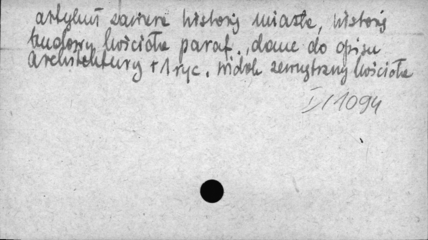 artykuł zawiera historię miasta, historię
budowy kościoła paraf., dane do opisu
architektury + 1 ryc. widok zewnętrzny kościoła
1094